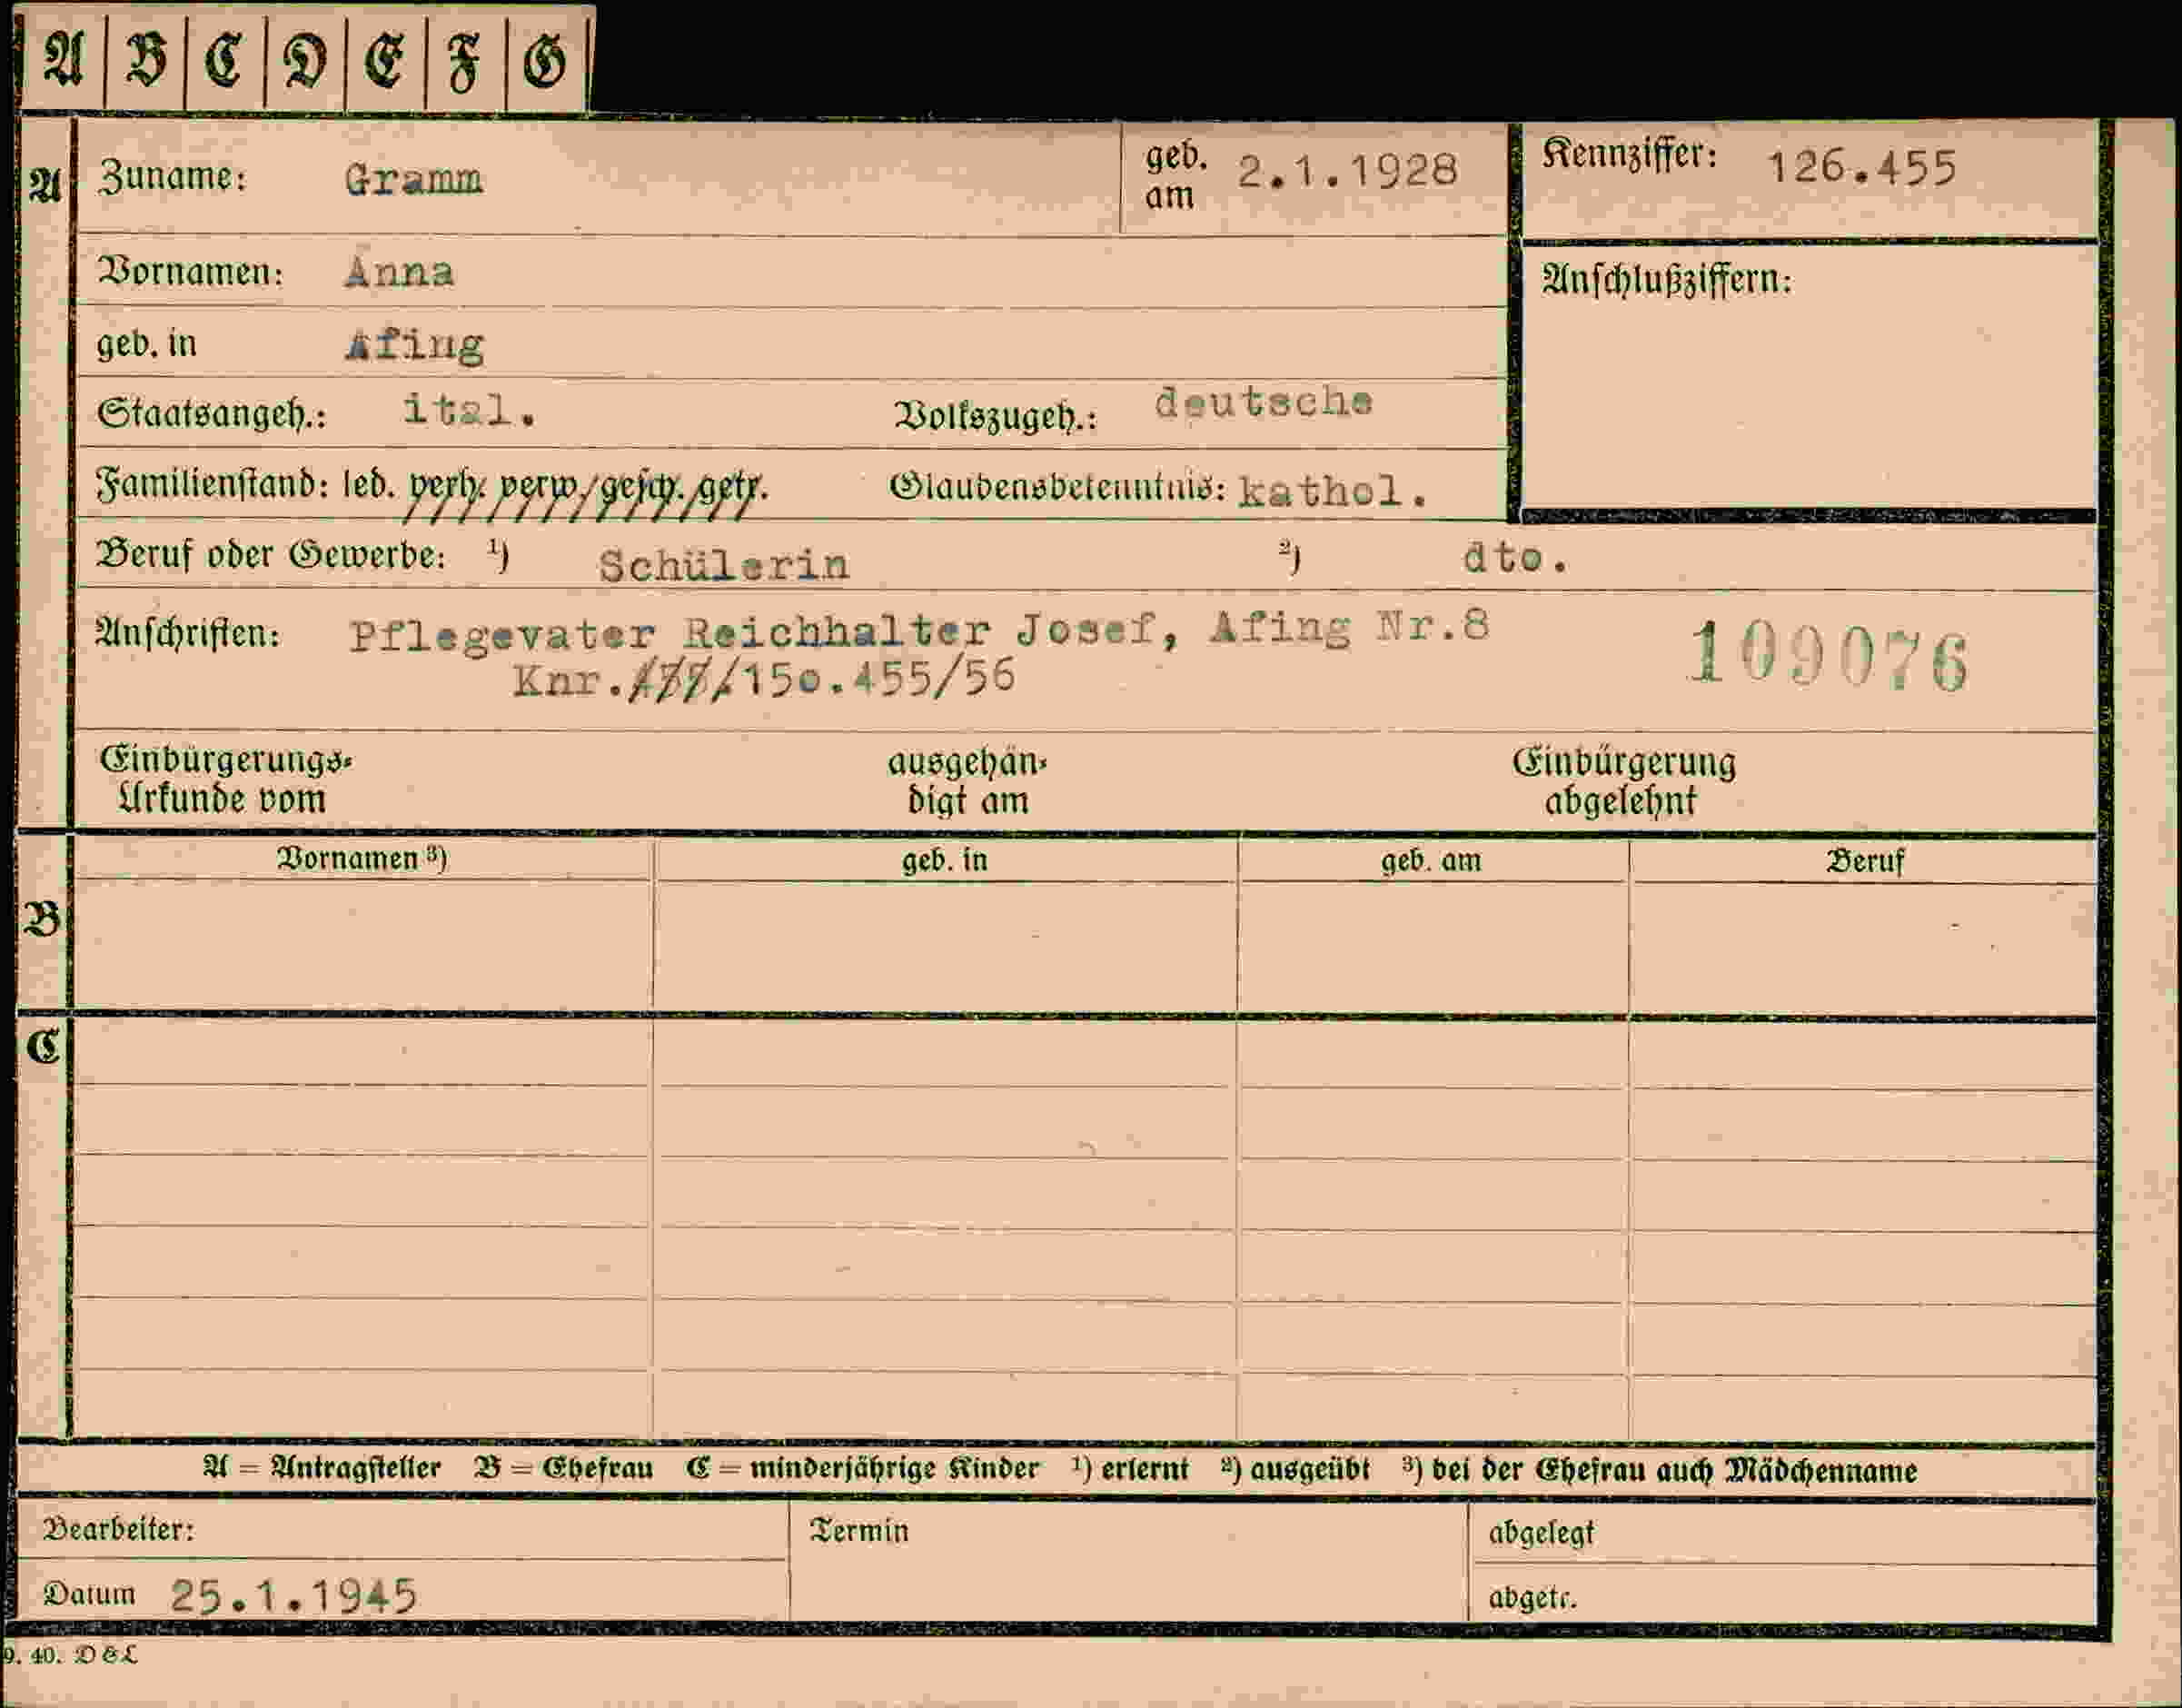 A B C D E F G
A Zuname: Gramm geb. am 2.1.1928 Kennziffer: 126.455
Vornamen: Anna Anschlußziffern:
geb. in Afing
Staatsangeh.: ital. Volkszugeh.: deutsche
Familienstand: led. verh. verw. gesch. getr. Glaubensbekenntnis: kathol.
Beruf oder Gewerbe: ¹) Schülerin ²) dto.
Anschriften: Pflegevater Reichhalter Josef, Afing Nr.8
Knr. /150.455/56 109076
Einbürgerungs- ausgehän- Einbürgerung
Urkunde vom digt am abgelehnt
Vornamen ³) geb. in geb. am Beruf
B
C
A = Antragsteller B = Ehefrau C = minderjährige Kinder ¹) erlernt ²) ausgeübt ³) bei der Ehefrau auch Mädchenname
Bearbeiter: Termin abgelegt
Datum 25.1.1945 abgetr.
9. 40. D&L